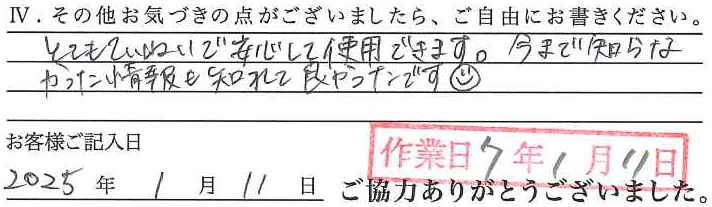 Ⅳ．その他お気づきの点がございましたら、ご自由にお書きください。
とてもていねいで安心して使用できます。今まで知らな
かった情報も知れて良かったです☺
お客様ご記入日
作業日7年1月11日
2025年1月11日
ご協力ありがとうございました。